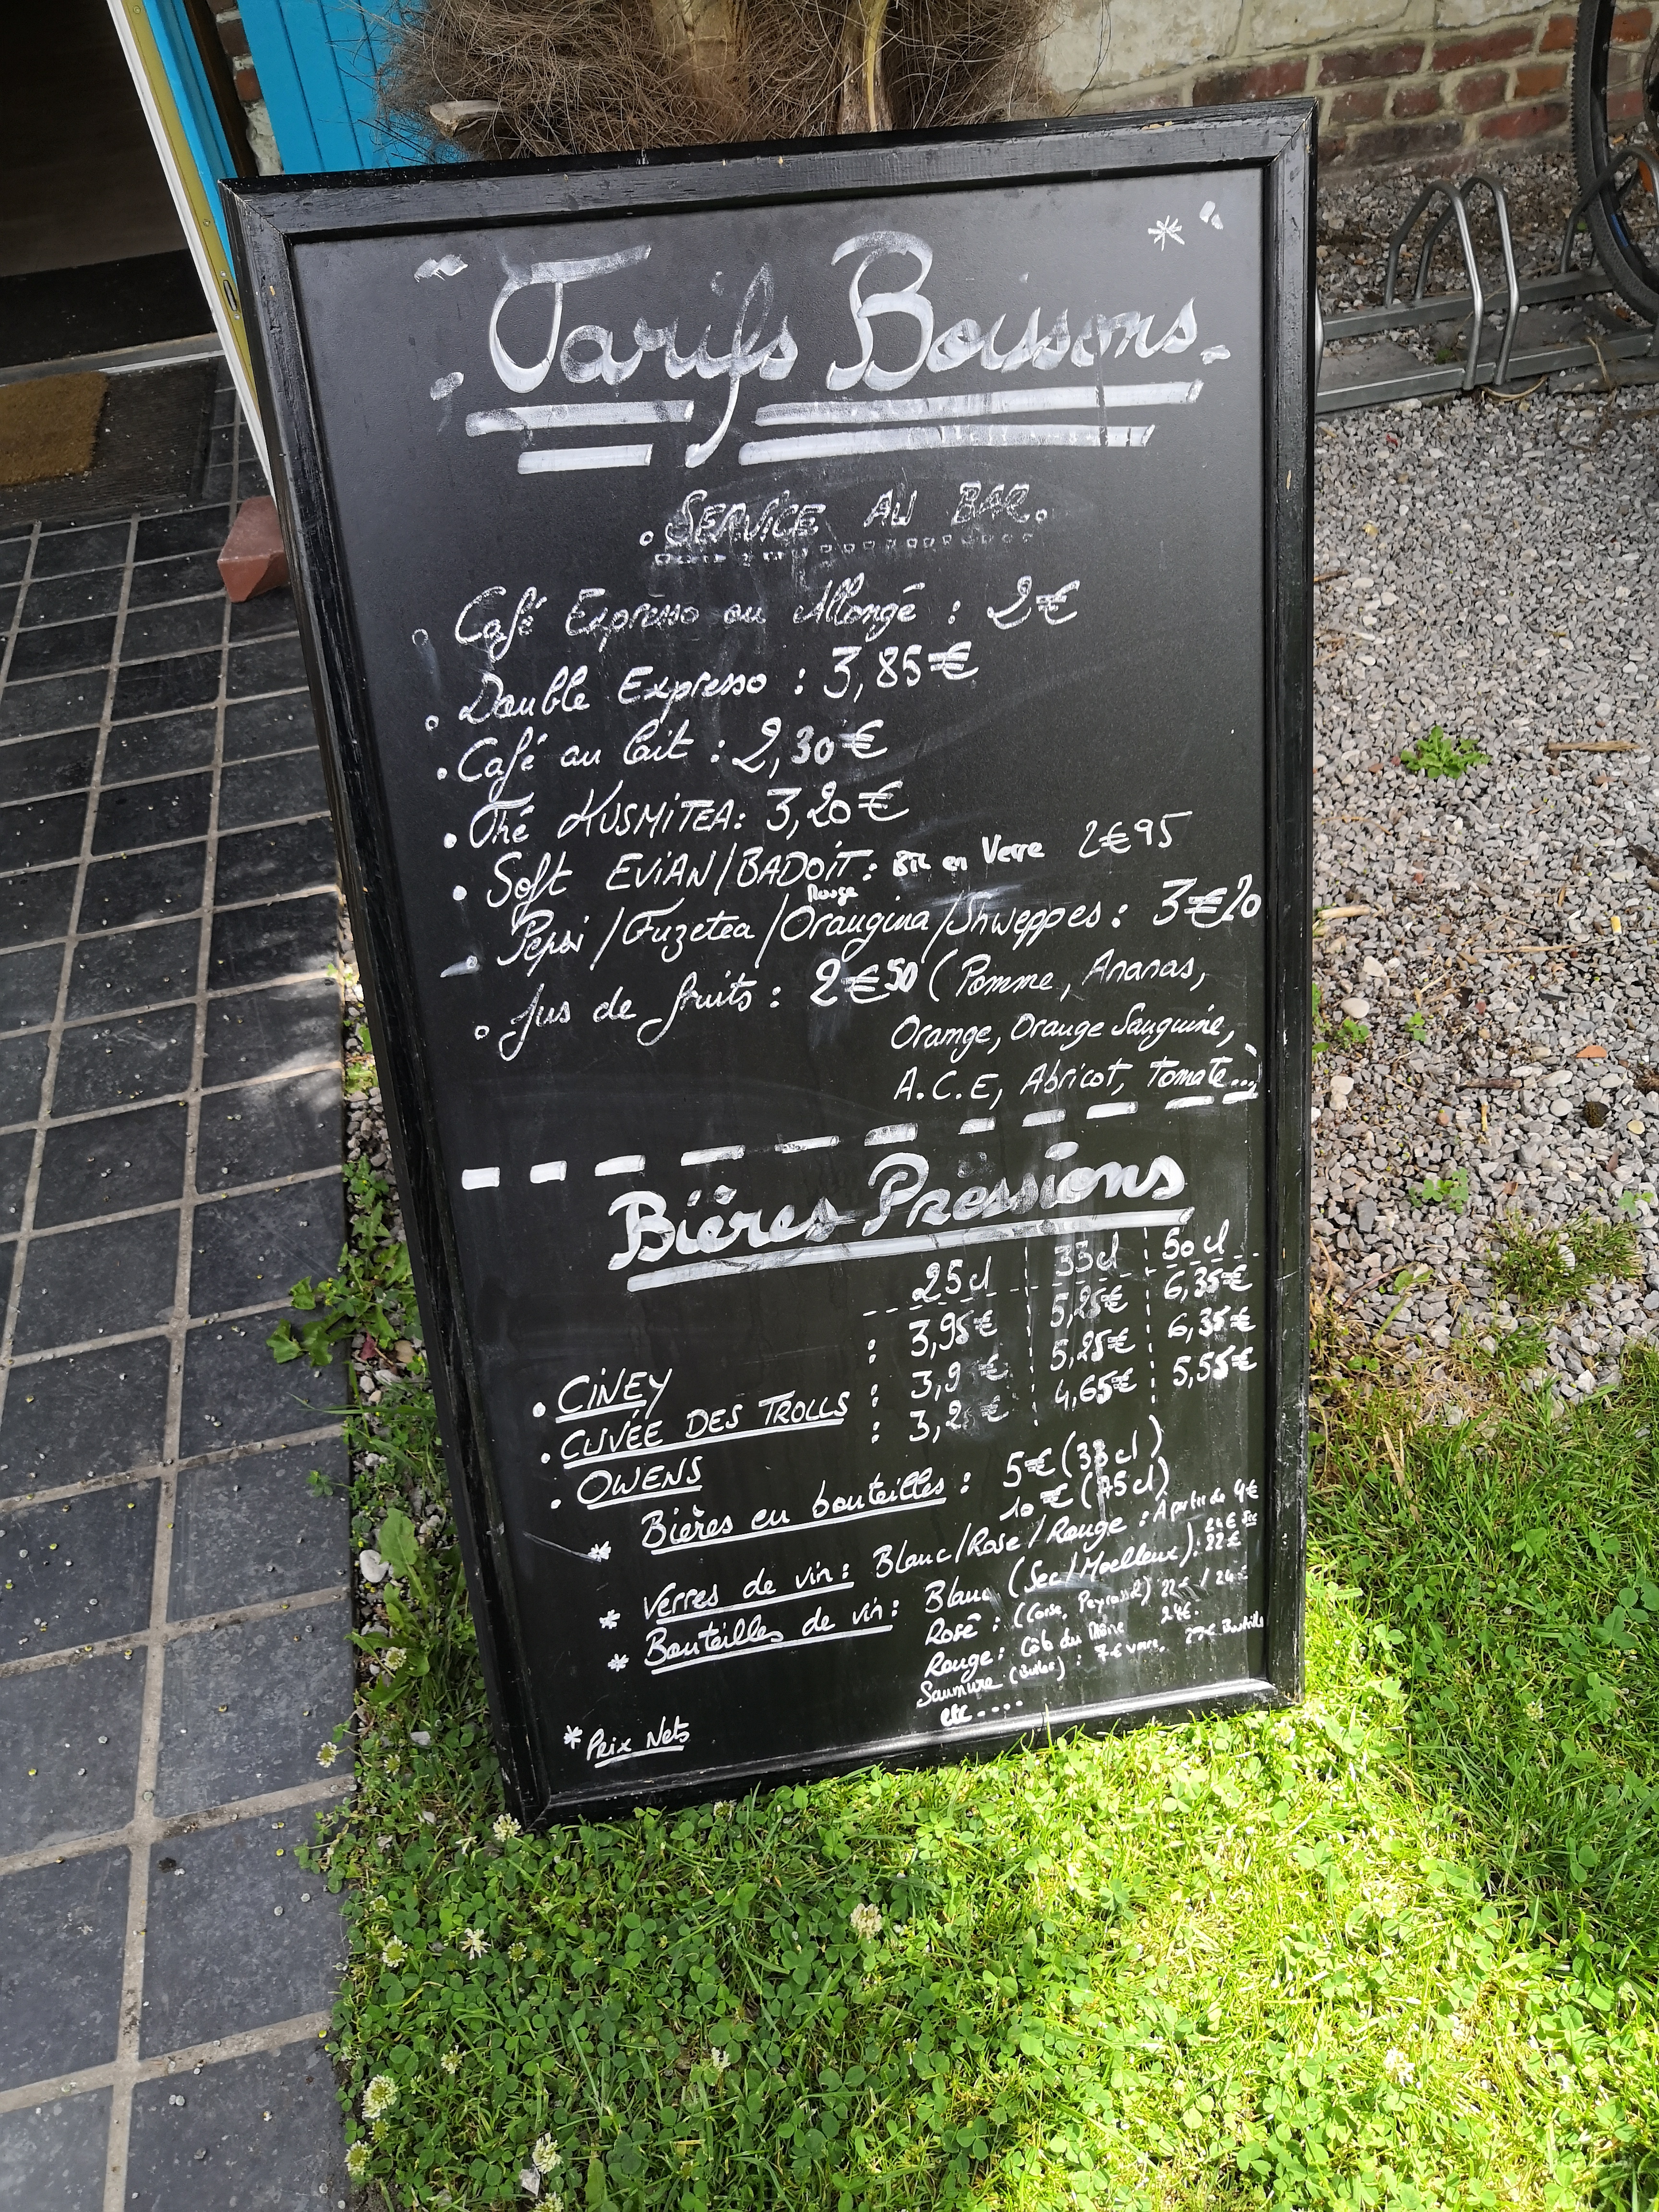 Tarifs Boissons
. SERVICE AU BAR.
Café Expresso ou Allongé : 2€
Double Expresso : 3,85€
Café au lait : 2,30€
Thé KUSMITEA: 3,20€
Soft EViAN/BADOiT: Btl en Verre 2€95
Rouge
Pepsi/Fuzetea/Orangina/Shweppes: 3€20
Jus de fruits: 2€50 (Pomme, Ananas,
Orange, Orange Sanguine,
A.C.E, Abricot, Tomate...)
Bières Pressions
25cl 33cl 50cl
CiNEY : 3,95€ 5,25€ 6,35€
CUVÉE DES TROLLS : 3,9 € 5,25€ 6,35€
OWENS : 3,2 € 4,65€ 5,55€
* Bières en bouteilles : 5€ (33cl)
10€ (75cl)
* Verres de vin: Blanc/Rosé/Rouge : A partir de 4€
* Bouteilles de vin: Blanc (Sec/Moelleux): 22€
24€ Sec
Rosé : (Corse, Peyrassol) 22€ / 24€
Rouge: Côte du Rhône 24€.
Saumure (Bulles) : 7€ verre, 27€ Bouteille
etc....
* Prix Nets